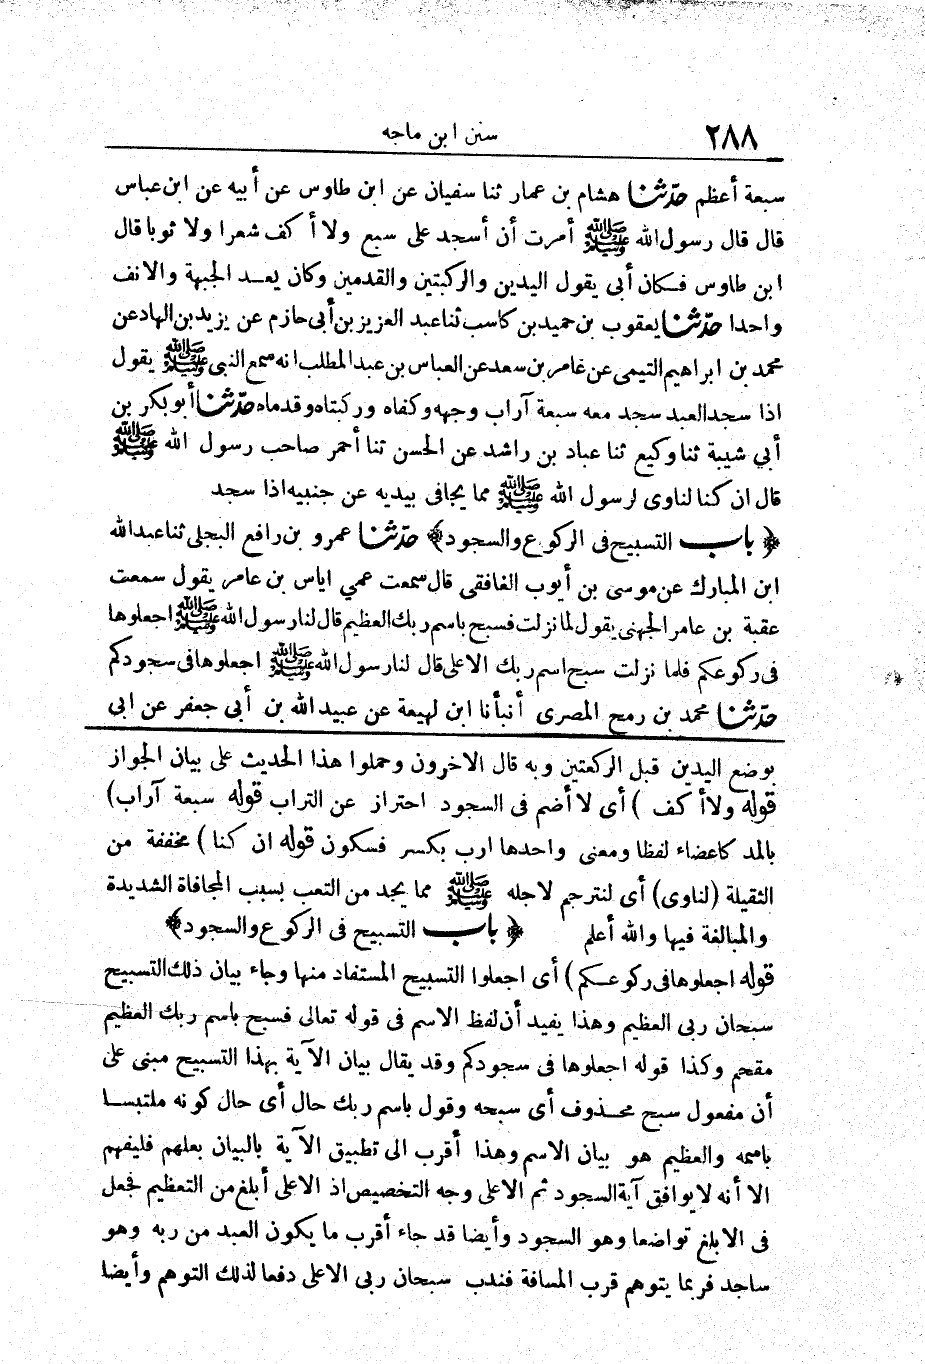 ٢٨٨
سنن ابن ماجه
سبعة أعظم حدّثنا هشام بن عمار ثنا سفيان عن ابن طاوس عن أبيه عن ابن عباس
قال قال رسول الله ﷺ أمرت أن أسجد على سبع ولا أكف شعرا ولا ثوبا قال
ابن طاوس فكان أبي يقول اليدين والركبتين والقدمين وكان يعد الجبهة والانف
واحدا حدّثنا يعقوب بن حميد بن كاسب ثنا عبد العزيز بن أبى حازم عن يزيد بن الهاد عن
محمد بن ابراهيم التيمى عن عامر بن سعد عن العباس بن عبد المطلب انه سمع النبى ﷺ يقول
اذا سجد العبد سجد معه سبعة آراب وجهه وكفاه وركبتاه وقدماه حدّثنا أبو بكر بن
أبي شيبة ثنا وكيع ثنا عباد بن راشد عن الحسن ثنا أحمر صاحب رسول الله ﷺ
قال ان كنا لناوى لرسول الله ﷺ مما يجافى بيديه عن جنبيه اذا سجد
﴿ باب التسبيح فى الركوع والسجود ﴾ حدّثنا عمرو بن رافع البجلى ثنا عبد الله
ابن المبارك عن موسى بن أيوب الغافقى قال سمعت عمي اياس بن عامر يقول سمعت
عقبة بن عامر الجهنى يقول لما نزلت فسبح باسم ربك العظيم قال لنا رسول الله ﷺ اجعلوها
فى ركوعكم فلما نزلت سبح اسم ربك الاعلى قال لنا رسول الله ﷺ اجعلوها فى سجودكم
حدّثنا محمد بن رمح المصرى أنبأنا ابن لهيعة عن عبيد الله بن أبى جعفر عن ابى
بوضع اليدين قبل الركعتين وبه قال الاخرون وحملوا هذا الحديث على بيان الجواز
قوله ولا أكف ) أى لا أضم فى السجود احتراز عن التراب قوله سبعة آراب)
بالمد كاعضاء لفظا ومعنى واحدها ارب بكسر فسكون قوله ان كنا ) مخففة من
الثقيلة (لناوى) أى لنترحم لاجله ﷺ مما يجد من التعب بسبب المجافاة الشديدة
والمبالغة فيها والله أعلم ﴿ باب التسبيح فى الركوع والسجود ﴾
قوله اجعلوها فى ركوعكم ) أى اجعلوا التسبيح المستفاد منها وجاء بيان ذلك التسبيح
سبحان ربى العظيم وهذا يفيد أن لفظ الاسم فى قوله تعالى فسبح باسم ربك العظيم
مقحم وكذا قوله اجعلوها فى سجودكم وقد يقال بيان الآية بهذا التسبيح مبنى على
أن مفعول سبح محذوف أى سبحه وقول باسم ربك حال أى حال كونه ملتبسا
باسمه والعظيم هو بيان الاسم وهذا أقرب الى تطبيق الآية بالبيان بعلهم فليفهم
الا أنه لا يوافق آية السجود ثم الاعلى وجه التخصيص اذ الاعلى أبلغ من التعظيم فجعل
فى الابلغ تواضعا وهو السجود وأيضا قد جاء أقرب ما يكون العبد من ربه وهو
ساجد فربما يتوهم قرب المسافة فندب سبحان ربى الاعلى دفعا لذلك التوهم وأيضا